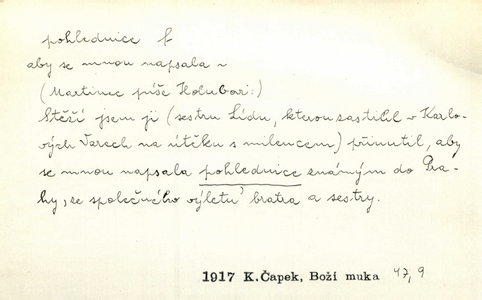 pohlednice f
aby se mnou napsala ~
(Martinec píše Holubovi:)
Stěží jsem ji (sestru Lídu, kterou zastihl v Karlo-
vých Varech na útěku s milencem) přinutil, aby
se mnou napsala pohlednice známým do Pra-
hy, ze společného výletu bratra a sestry.
1917 K.Čapek, Boží muka 47,9